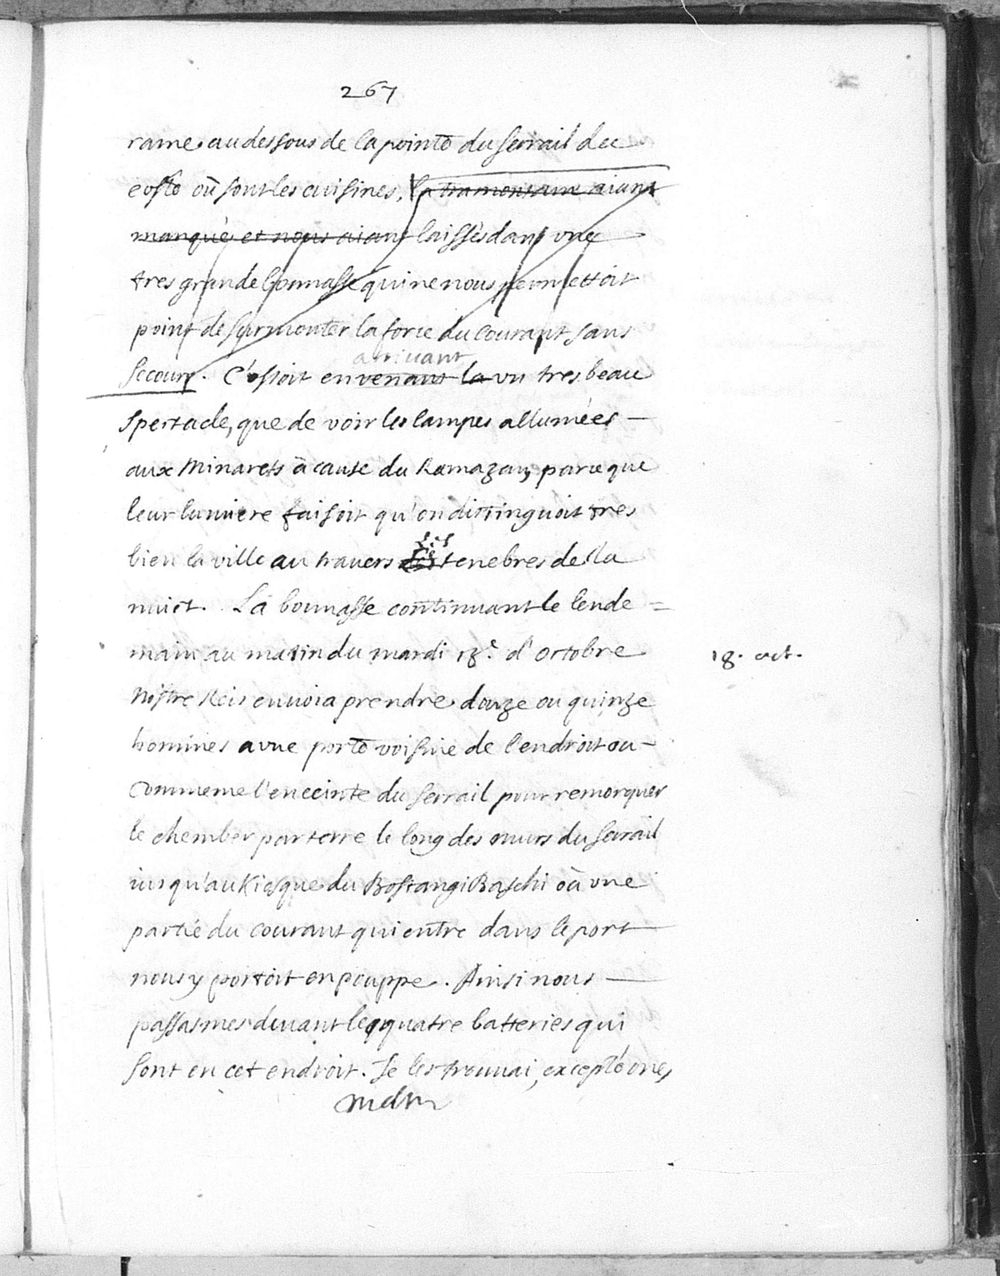 267
rame au dessous de la pointe du serrail du
costé où sont les cuisines, la tramontane aiant
manqué et nous aiant laissés dans une
tres grande bonnasse qui ne nous permettoit
point de surmonter la force du courant sans
secours. C'estoit en venant la un tres beau
arrivant
spectacle, que de voir les lampes allumées
aux Minarets à cause du Ramazan, parce que
leur lumiere faisoit qu'on distinguoit tres
bien la ville au travers les tenebres de la
nuict. La bounasse continuant le lende =
main au matin du mardi 18e. d'Octobre
18. oct.
Nostre Reis envoia prendre douze ou quinze
hommes a une porte voisine de l'endroit ou
commence l'enceinte du serrail pour remorquer
le chember par terre le long des murs du serrail
jusqu'au Kiosque du Bostangi Baschi où une
partie du courant qui entre dans le port
nous y portoit en pouppe. Ainsi nous
passasmes devant les quatre batteries qui
sont en cet endroit. Je les trouvai, excepté une,